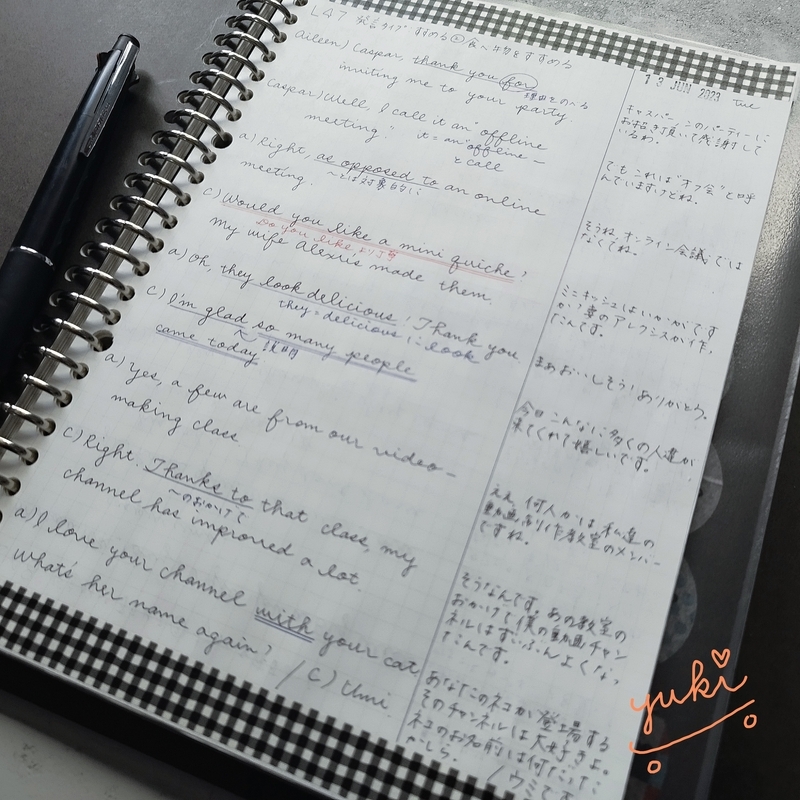 L47 発言タイプ すすめる② 食べ物をすすめる
Aileen) Caspar, thank you for
inviting me to your party.
理由をのべる
Caspar) Well, I call it an "offline
meeting." it = an offline-
とcall
a) Right, as opposed to an online
~とは対象的に
meeting.
C) Would you like a mini quiche?
Do you likeより丁寧
my wife Alexis made them.
a) Oh, they look delicious! Thank you
they = deliciousにlook
C) I'm glad so many people
came today. 説明
a) Yes, a few are from our video-
making class.
C) Right. Thanks to that class, my
~のおかげで
channel has improved a lot.
a) I love your channel with your cat.
What's her name again?
/ C) Umi.
13 JUN 2023 tue
キャスパー、このパーティーに
お招き頂いて感謝して
いるわ。
でもこれは"オフ会"と呼
んでいますけどね。
そうね、オンライン会議では
なくてね。
ミニキッシュはいかがです
か? 妻のアレクシスが作っ
たんです。
まあおいしそう! ありがとう。
今日こんなに多くの人達が
来てくれて嬉しいです。
ええ、何人かは私達の
動画制作教室のメンバー
ですね。
そうなんです。あの教室の
おかげで僕の動画チャン
ネルはずいぶんよくなっ
たんです。
あなたのネコが登場する
そのチャンネルは大好きよ。
ネコのお名前は何だった
かしら。
/ ウミです
yuki